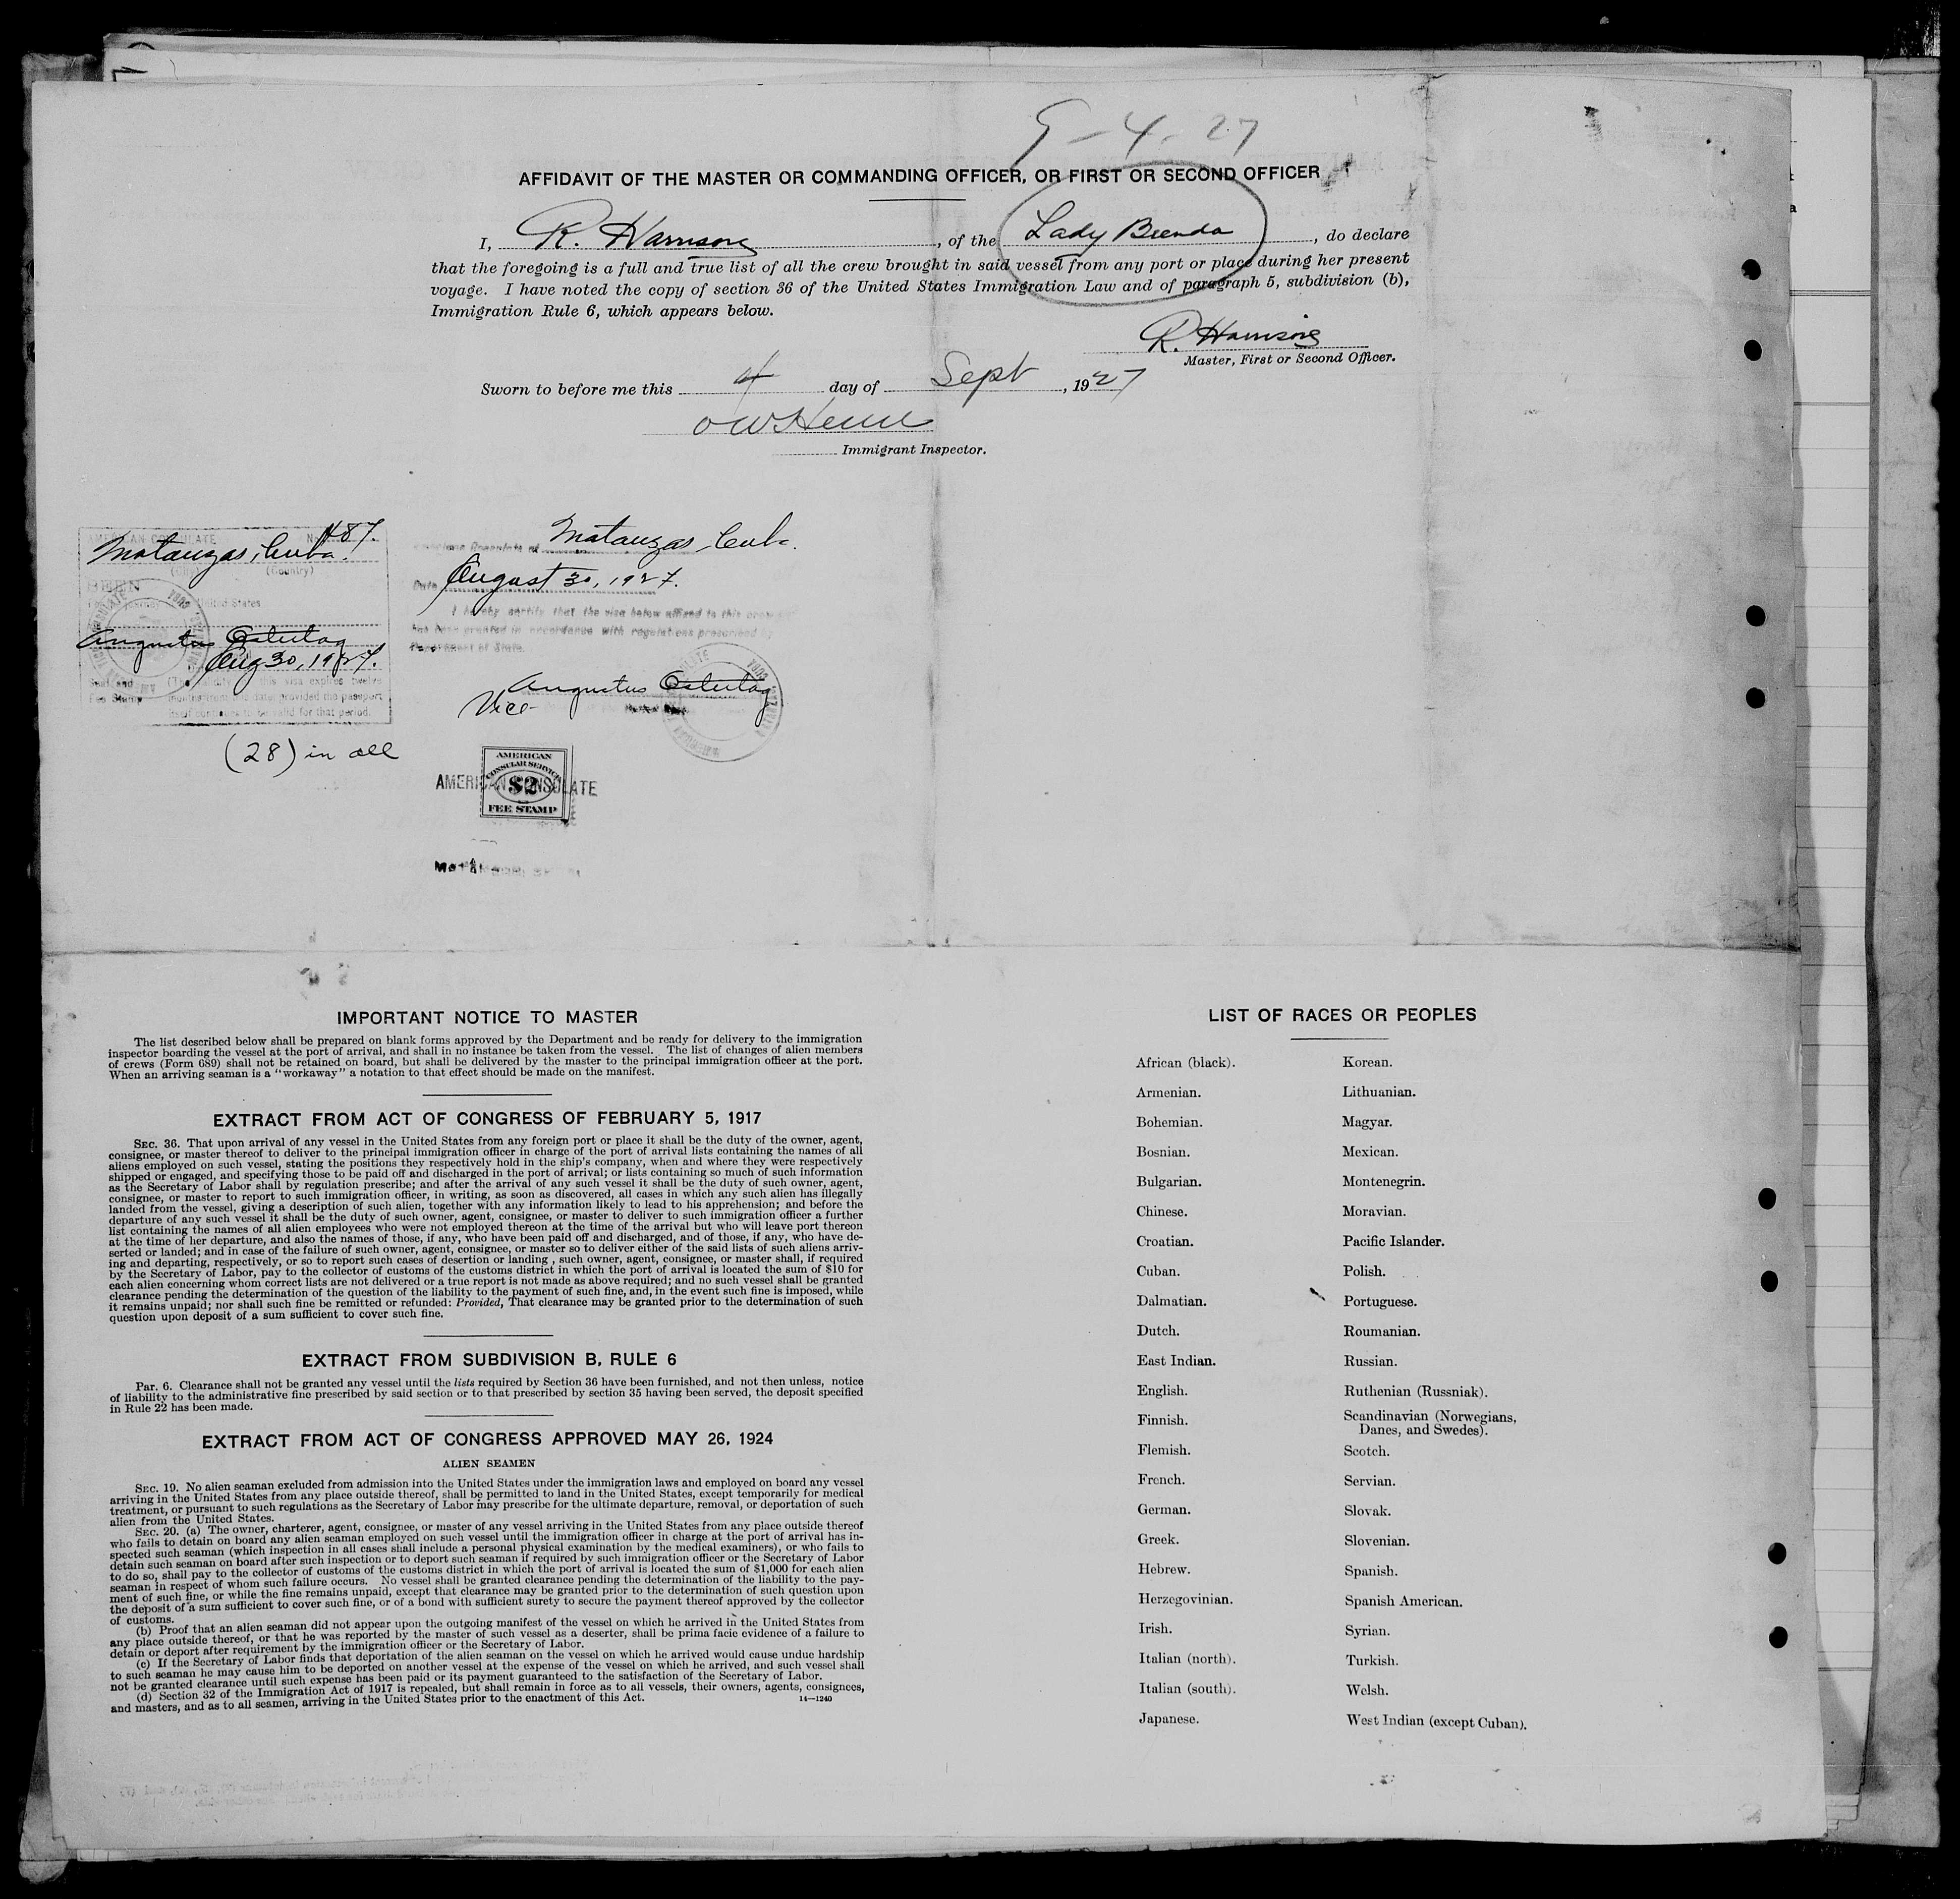 9-4-27
AFFIDAVIT OF THE MASTER OR COMMANDING OFFICER, OR FIRST OR SECOND OFFICER
I, R. Harrison, of the Lady Brenda, do declare
that the foregoing is a full and true list of all the crew brought in said vessel from any port or place during her present
voyage. I have noted the copy of section 36 of the United States Immigration Law and of paragraph 5, subdivision (b),
Immigration Rule 6, which appears below.
R. Harrison
Master, First or Second Officer.
Sworn to before me this 4 day of Sept, 1927
Immigrant Inspector.
AMERICAN CONSULATE No. 487.
Matanzas, Cuba.
(City) (Country)
SEEN
United States
Augustus Ostertag
Aug 30, 1927.
Seal and
Fee Stamp
(The validity of this visa expires twelve
months from this date provided the passport
itself continues to be valid for that period.
(28) in all
Matanzas, Cuba.
Date August 30, 1927.
I hereby certify that the visa below affixed to this crew
has been granted in accordance with regulations prescribed by
Department of State.
Augustus Ostertag
Vice
AMERICAN
CONSULAR SERVICE
$2
FEE STAMP
AMERICAN CONSULATE
IMPORTANT NOTICE TO MASTER
The list described below shall be prepared on blank forms approved by the Department and be ready for delivery to the immigration
inspector boarding the vessel at the port of arrival, and shall in no instance be taken from the vessel. The list of changes of alien members
of crews (Form 689) shall not be retained on board, but shall be delivered by the master to the principal immigration officer at the port.
When an arriving seaman is a "workaway" a notation to that effect should be made on the manifest.
EXTRACT FROM ACT OF CONGRESS OF FEBRUARY 5, 1917
SEC. 36. That upon arrival of any vessel in the United States from any foreign port or place it shall be the duty of the owner, agent,
consignee, or master thereof to deliver to the principal immigration officer in charge of the port of arrival lists containing the names of all
aliens employed on such vessel, stating the positions they respectively hold in the ship's company, when and where they were respectively
shipped or engaged, and specifying those to be paid off and discharged in the port of arrival; or lists containing so much of such information
as the Secretary of Labor shall by regulation prescribe; and after the arrival of any such vessel it shall be the duty of such owner, agent,
consignee, or master to report to such immigration officer, in writing, as soon as discovered, all cases in which any such alien has illegally
landed from the vessel, giving a description of such alien, together with any information likely to lead to his apprehension; and before the
departure of any such vessel it shall be the duty of such owner, agent, consignee, or master to deliver to such immigration officer a further
list containing the names of all alien employees who were not employed thereon at the time of the arrival but who will leave port thereon
at the time of her departure, and also the names of those, if any, who have been paid off and discharged, and of those, if any, who have de-
serted or landed; and in case of the failure of such owner, agent, consignee, or master so to deliver either of the said lists of such aliens arriv-
ing and departing, respectively, or so to report such cases of desertion or landing , such owner, agent, consignee, or master shall, if required
by the Secretary of Labor, pay to the collector of customs of the customs district in which the port of arrival is located the sum of $10 for
each alien concerning whom correct lists are not delivered or a true report is not made as above required; and no such vessel shall be granted
clearance pending the determination of the question of the liability to the payment of such fine, and, in the event such fine is imposed, while
it remains unpaid; nor shall such fine be remitted or refunded: Provided, That clearance may be granted prior to the determination of such
question upon deposit of a sum sufficient to cover such fine.
EXTRACT FROM SUBDIVISION B, RULE 6
PAR. 6. Clearance shall not be granted any vessel until the lists required by Section 36 have been furnished, and not then unless, notice
of liability to the administrative fine prescribed by said section or to that prescribed by section 35 having been served, the deposit specified
in Rule 22 has been made.
EXTRACT FROM ACT OF CONGRESS APPROVED MAY 26, 1924
ALIEN SEAMEN
SEC. 19. No alien seaman excluded from admission into the United States under the immigration laws and employed on board any vessel
arriving in the United States from any place outside thereof, shall be permitted to land in the United States, except temporarily for medical
treatment, or pursuant to such regulations as the Secretary of Labor may prescribe for the ultimate departure, removal, or deportation of such
alien from the United States.
SEC. 20. (a) The owner, charterer, agent, consignee, or master of any vessel arriving in the United States from any place outside thereof
who fails to detain on board any alien seaman employed on such vessel until the immigration officer in charge at the port of arrival has in-
spected such seaman (which inspection in all cases shall include a personal physical examination by the medical examiners), or who fails to
detain such seaman on board after such inspection or to deport such seaman if required by such immigration officer or the Secretary of Labor
to do so, shall pay to the collector of customs of the customs district in which the port of arrival is located the sum of $1,000 for each alien
seaman in respect of whom such failure occurs. No vessel shall be granted clearance pending the determination of the liability to the pay-
ment of such fine, or while the fine remains unpaid, except that clearance may be granted prior to the determination of such question upon
the deposit of a sum sufficient to cover such fine, or of a bond with sufficient surety to secure the payment thereof approved by the collector
of customs.
(b) Proof that an alien seaman did not appear upon the outgoing manifest of the vessel on which he arrived in the United States from
any place outside thereof, or that he was reported by the master of such vessel as a deserter, shall be prima facie evidence of a failure to
detain or deport after requirement by the immigration officer or the Secretary of Labor.
(c) If the Secretary of Labor finds that deportation of the alien seaman on the vessel on which he arrived would cause undue hardship
to such seaman he may cause him to be deported on another vessel at the expense of the vessel on which he arrived, and such vessel shall
not be granted clearance until such expense has been paid or its payment guaranteed to the satisfaction of the Secretary of Labor.
(d) Section 32 of the Immigration Act of 1917 is repealed, but shall remain in force as to all vessels, their owners, agents, consignees,
and masters, and as to all seamen, arriving in the United States prior to the enactment of this Act. 14—1240
LIST OF RACES OR PEOPLES
African (black). Korean.
Armenian. Lithuanian.
Bohemian. Magyar.
Bosnian. Mexican.
Bulgarian. Montenegrin.
Chinese. Moravian.
Croatian. Pacific Islander.
Cuban. Polish.
Dalmatian. Portuguese.
Dutch. Roumanian.
East Indian. Russian.
English. Ruthenian (Russniak).
Finnish. Scandinavian (Norwegians,
Danes, and Swedes).
Flemish. Scotch.
French. Servian.
German. Slovak.
Greek. Slovenian.
Hebrew. Spanish.
Herzegovinian. Spanish American.
Irish. Syrian.
Italian (north). Turkish.
Italian (south). Welsh.
Japanese. West Indian (except Cuban).